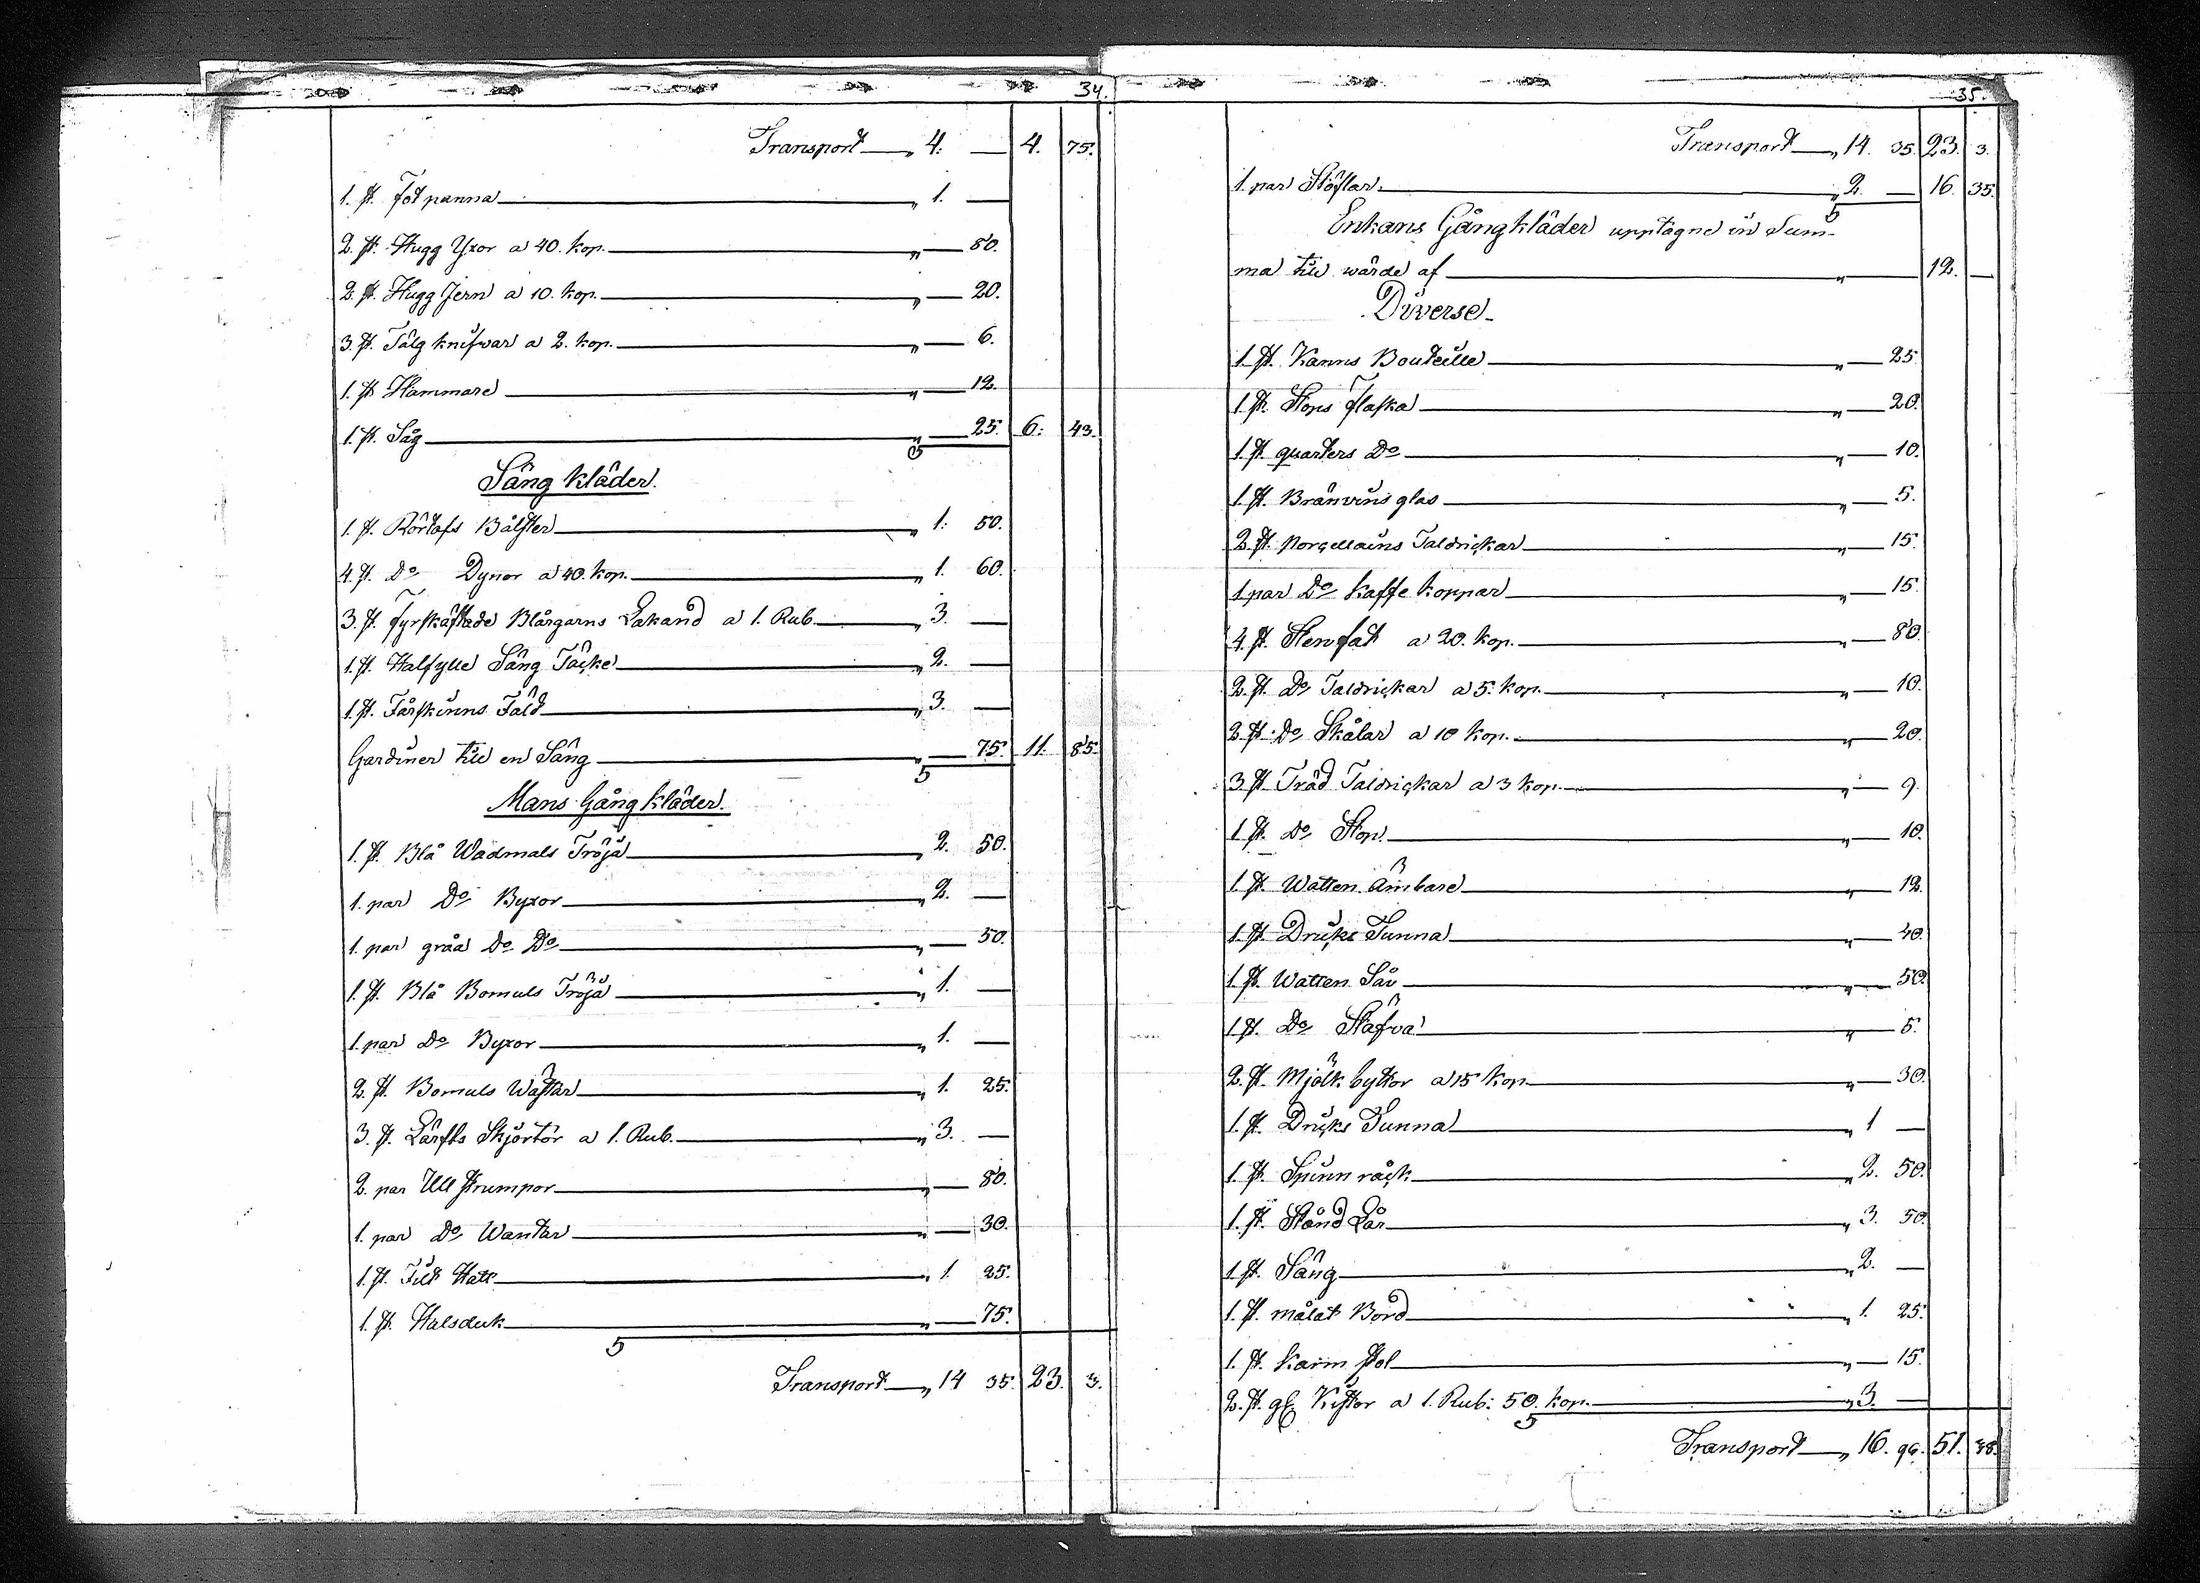 34.
Transport — „ 4: — 4. 75.
1. st. Fot panna — „ 1. —
2. st. Hugg Yxor a 40. kop. — „ — 80.
2. st. Hugg Jern a 10. kop. — „ — 20.
3. st. Tälg knifvar a 2. kop. — „ — 6.
1. st. Hammare — „ — 12.
1. st. Såg — „ — 25. 6: 43.
Säng kläder.
1. st. Bålster — „ 1: 50.
4. st. Do Dynor a 40. kop. — „ 1. 60.
3. st. fyrskäftade Blårgarns Lakand a 1. Rub. — „ 3. —
1. st. Halfylle Säng Täcke — „ 2. —
1. st. Fårskinns Fäld — „ 3. —
Gardiner till en Säng — „ — 75. 11. 85.
Mans Gång kläder.
1. st. Blå Wadmals Tröja — „ 2. 50.
1. par Do Byxor — „ 2. —
1. par gråa Do Do — „ — 50.
1. st. Blå Bomuls Tröja — „ 1. —
1. par Do Byxor — „ 1. —
2. st. Bomuls Wästar — „ 1. 25.
3. st. Lärfts Skjortor a 1. Rub. — „ 3. —
2. par Ull strumpor — „ — 80.
1. par Do Wantar — „ — 30.
1. st. Filt Hatt — „ 1. 25.
1. st. Halsduk — „ — 75.
Transport — „ 14 35. 23. 3.
35.
Transport — „ 14. 35. 23. 3.
1. par Stöflar. — „ 2. — 16. 35.
Enkans Gångkläder upptagne in Sum-
ma till wärde af — „ — 12. —
Diverse
1. st. Kanns Bouteille — „ — 25
1. st. Stops flaska — „ — 20.
1. st. quarters Do — „ — 10.
1. st. Bränvins glas — „ — 5.
2. st. Porcellains Taldrickar — „ — 15.
1. par Do kaffe koppar — „ — 15.
4. st. Stenfat a 20. kop. — „ — 80.
2. st. Do Taldrickar a 5. kop. — „ — 10.
2. st. Do Skålar a 10 kop. — „ — 20.
3. st. Träd Taldrickar a 3 kop. — „ — 9.
1. st. Do Stop — „ — 10.
1. st. Watten Ämbare — „ — 12.
1. st. Dricks Tunna — „ — 40.
1. st. Watten Så — „ — 50.
1. st. Do Stäfva — „ — 5.
2. st. Mjölk byttor a 15 kop. — „ — 30.
1. st. Dricks Tunna — „ 1 —
1. st. Spinn råck — „ 2. 50.
1. st. Stånd Lår — „ 3. 50.
1. st. Säng — „ 2. —
1. st. målat Bord — „ 1. 25.
1. st. Karm stol — „ — 15.
2. st. gl. Kistor a 1. Rub: 50. kop. — „ 3. —
Transport — „ 16. 96. 51. 38.